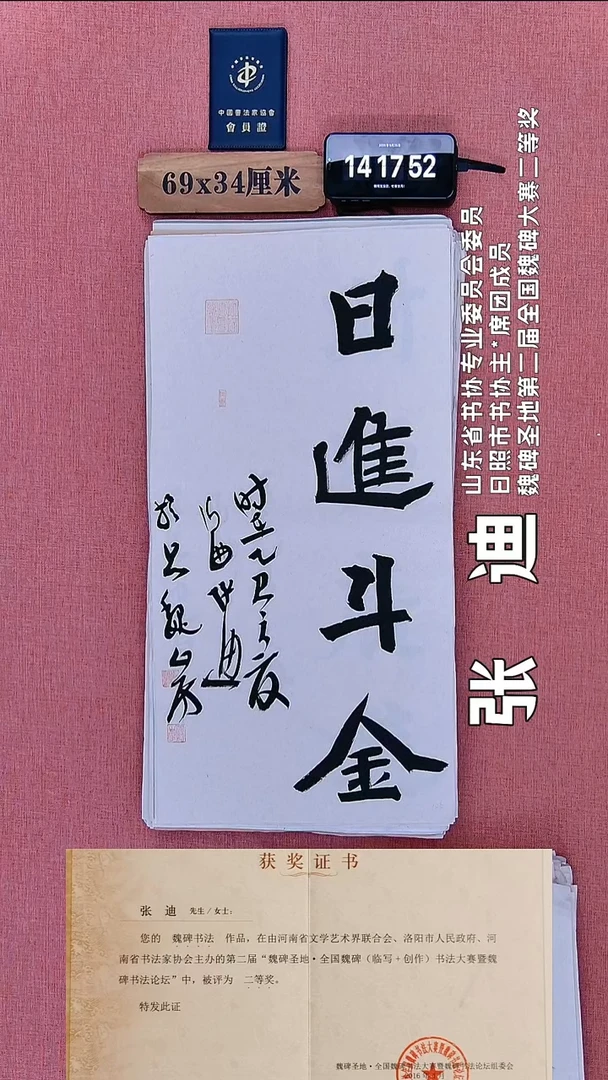 中國書法家協會
會員證
69x34厘米
14 17 52
山东省书协专业委员会委员
日照市书协主*席团成员
魏碑圣地第二届全国魏碑大赛二等奖
张 迪
日進斗金
时在乙巳之夏
张迪
於尚魏山房
获奖证书
张 迪 先生/女士：
您的 魏碑书法 作品，在由河南省文学艺术界联合会、洛阳市人民政府、河
南省书法家协会主办的第二届“魏碑圣地·全国魏碑（临写+创作）书法大赛暨魏
碑书法论坛”中，被评为 二等奖。
特发此证
魏碑圣地·全国魏碑书法大赛暨魏碑书法论坛组委会